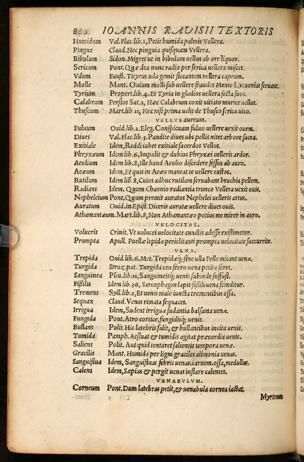 880 IOANNIS RAVISII TEXTORIS
Humidum Val. Flac. lib. 1, Pelle humida palmis Vellera.
Pingue Claud. Nec pinguia quisquam Vellera.
Bibulum Sidon. Migret ut in bibulum
Sericum Pont. Quæ dea nunc radio per serica vellera
Vdum Faust. Tityrus uda genis siccantem vellera caprum.
Molle Mant. Ouium molli sub vellere
Tyrium Propert. lib. 4. Et Tyria in gladios vellera secta suos.
Calabrum Persius Sat. 2, Hæc Calabrum coxit uitiato murice vellus.
Thuscum Mart. lib. Nec nisi prima uelit de Thusco
VELLUS aureum.
Fuluum Ouid. lib. 2. Eleg. Conspicuam fuluo vellere uexit ouem.
Diues Val. Flac. lib. Pandit diues ubi pellis nitet arbore sacra.
Exitiale Idem, Reddi iubet exitiale sacerdos Vellus.
Phryxæum Idem lib. 6, impulit & dubios Phryxei velleris ardor.
Aeolium Idem lib. 8, ille haud Aeolio discedere
Aeæum Idem, Et quis in Aeæo maneat te vellere castus.
Rutilum Idem lib. 8, Cuius adhuc rutilam seruabant brachia pellem.
Radians Idem, Quum Chaonio radiantia trunco Vellera uexit ouis.
Nephelæum Pont. Quum premit auratos Nephelei velleris artus.
Auratum Ouid. in Epist. Dicerit auratæ vellere diues ouis.
Athamantæum. Mart. lib. 8, Non Athamantæo potius me miret in auro.
VELOCITAS.
Volucris Crinit. Vt uolucri velocitate cunctis adesse existimetur.
Prompta Apull. Puellæ lepida periclitanti prompta velocitate succurrite.
VENA.
Trepida Ouid. lib. 6. Met. Trepidasque sine ulla Pelle micant uenæ.
Turgida Stroz. pat. Turgida
Sanguinea Plin. lib. 11, Sanguineis uenis
Fistilis Idem lib. 36, Sarcophagus lapis fissili uena scinditur.
Tremens Syll. lib. 2, Et uenit male iuncta trementibus ossa.
Sequax Claud. Venas rimata sequaces.
Irrigua Idem, Sudent irrigua
Fungida Pont. Atro cortice,
Bullans Polit. Hic latebris salit, & bullantibus incita uenis.
Tumida Pamph. Aestuat & tumidis agitat præcordia uenis.
Salient Polit. Aut quid tentaret salientis tempora uenæ.
Gracilis Mant. Humida per ligni graciles alimonia uenas.
Sanguisua Idem,
Calens Idem, Sapius & pergit uenas
VENABVLVM.
Corneum Pont. Dum latebras petit, & uenabula cornea iactat.
Myrteum